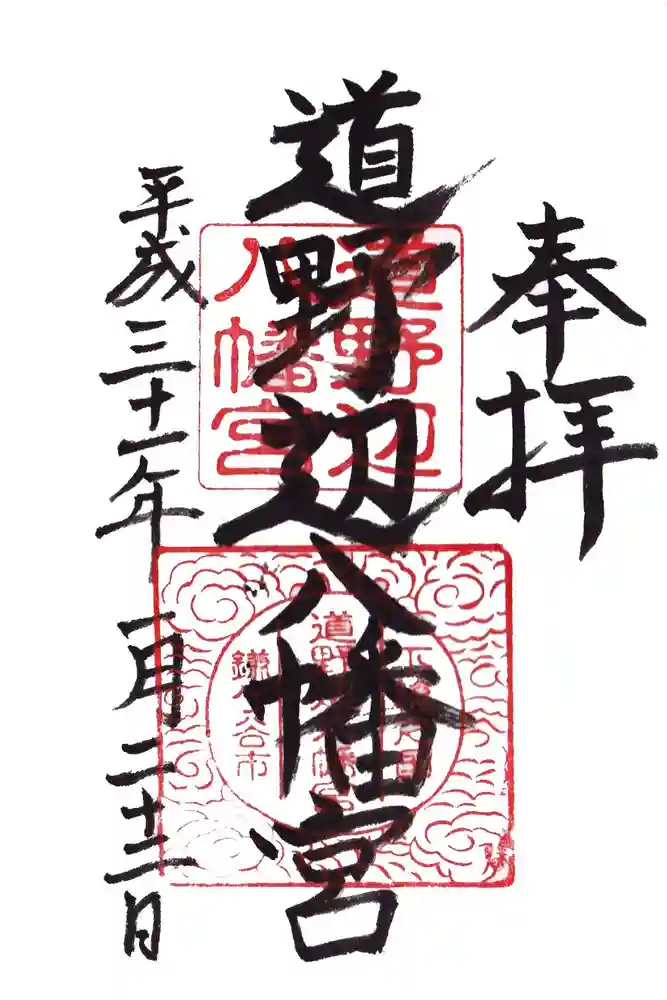 奉拝
道野辺八幡宮
道野辺
八幡宮
道野辺八幡宮
鎌ケ谷市
平成三十一年 一月二十二日